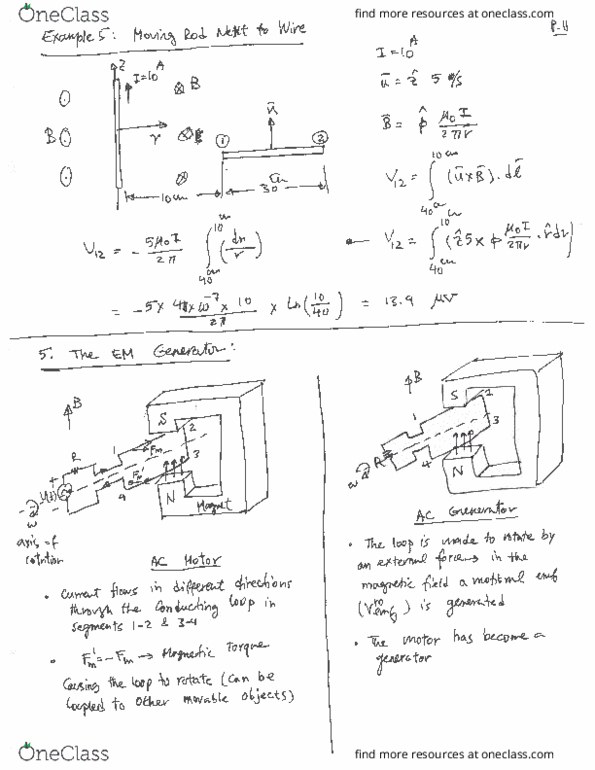 OneClass
find more resources at oneclass.com
Example 5: Moving Rod Next to Wire
P-4
z
I=10 A
B
B
r
ū
1
2
10 cm
30 cm
I = 10 A
ū = ẑ 5 m/s
B̄ = φ̂ μ₀I / 2πr
V₁₂ = ∫ 40cm 10cm (ū×B̄)·dl̄
V₁₂ = ∫ 40cm 10cm (ẑ5 × φ̂ μ₀I/2πr · r̂dr)
V₁₂ = - 5μ₀I/2π ∫ 40cm 10cm (dr/r)
= -5×4π×10⁻⁷×10 / 2π × Ln(10/40) = 13.9 μV
5. The EM Generator:
B
S
1
2
R
Fm
3
F'm
4
N
V(t)
ω
Magnet
axis of
rotation
AC Motor
• Current flows in different directions
through the conducting loop in
segments 1-2 & 3-4
• F'm = -Fm → Magnetic Torque
Causing the loop to rotate (can be
coupled to other movable objects)
B
S
1
2
3
R
4
N
ω
AC Generator
• The loop is made to rotate by
an external force in the
magnetic field a motional emf
(Vemf) is generated
• The motor has become a
generator
OneClass
find more resources at oneclass.com